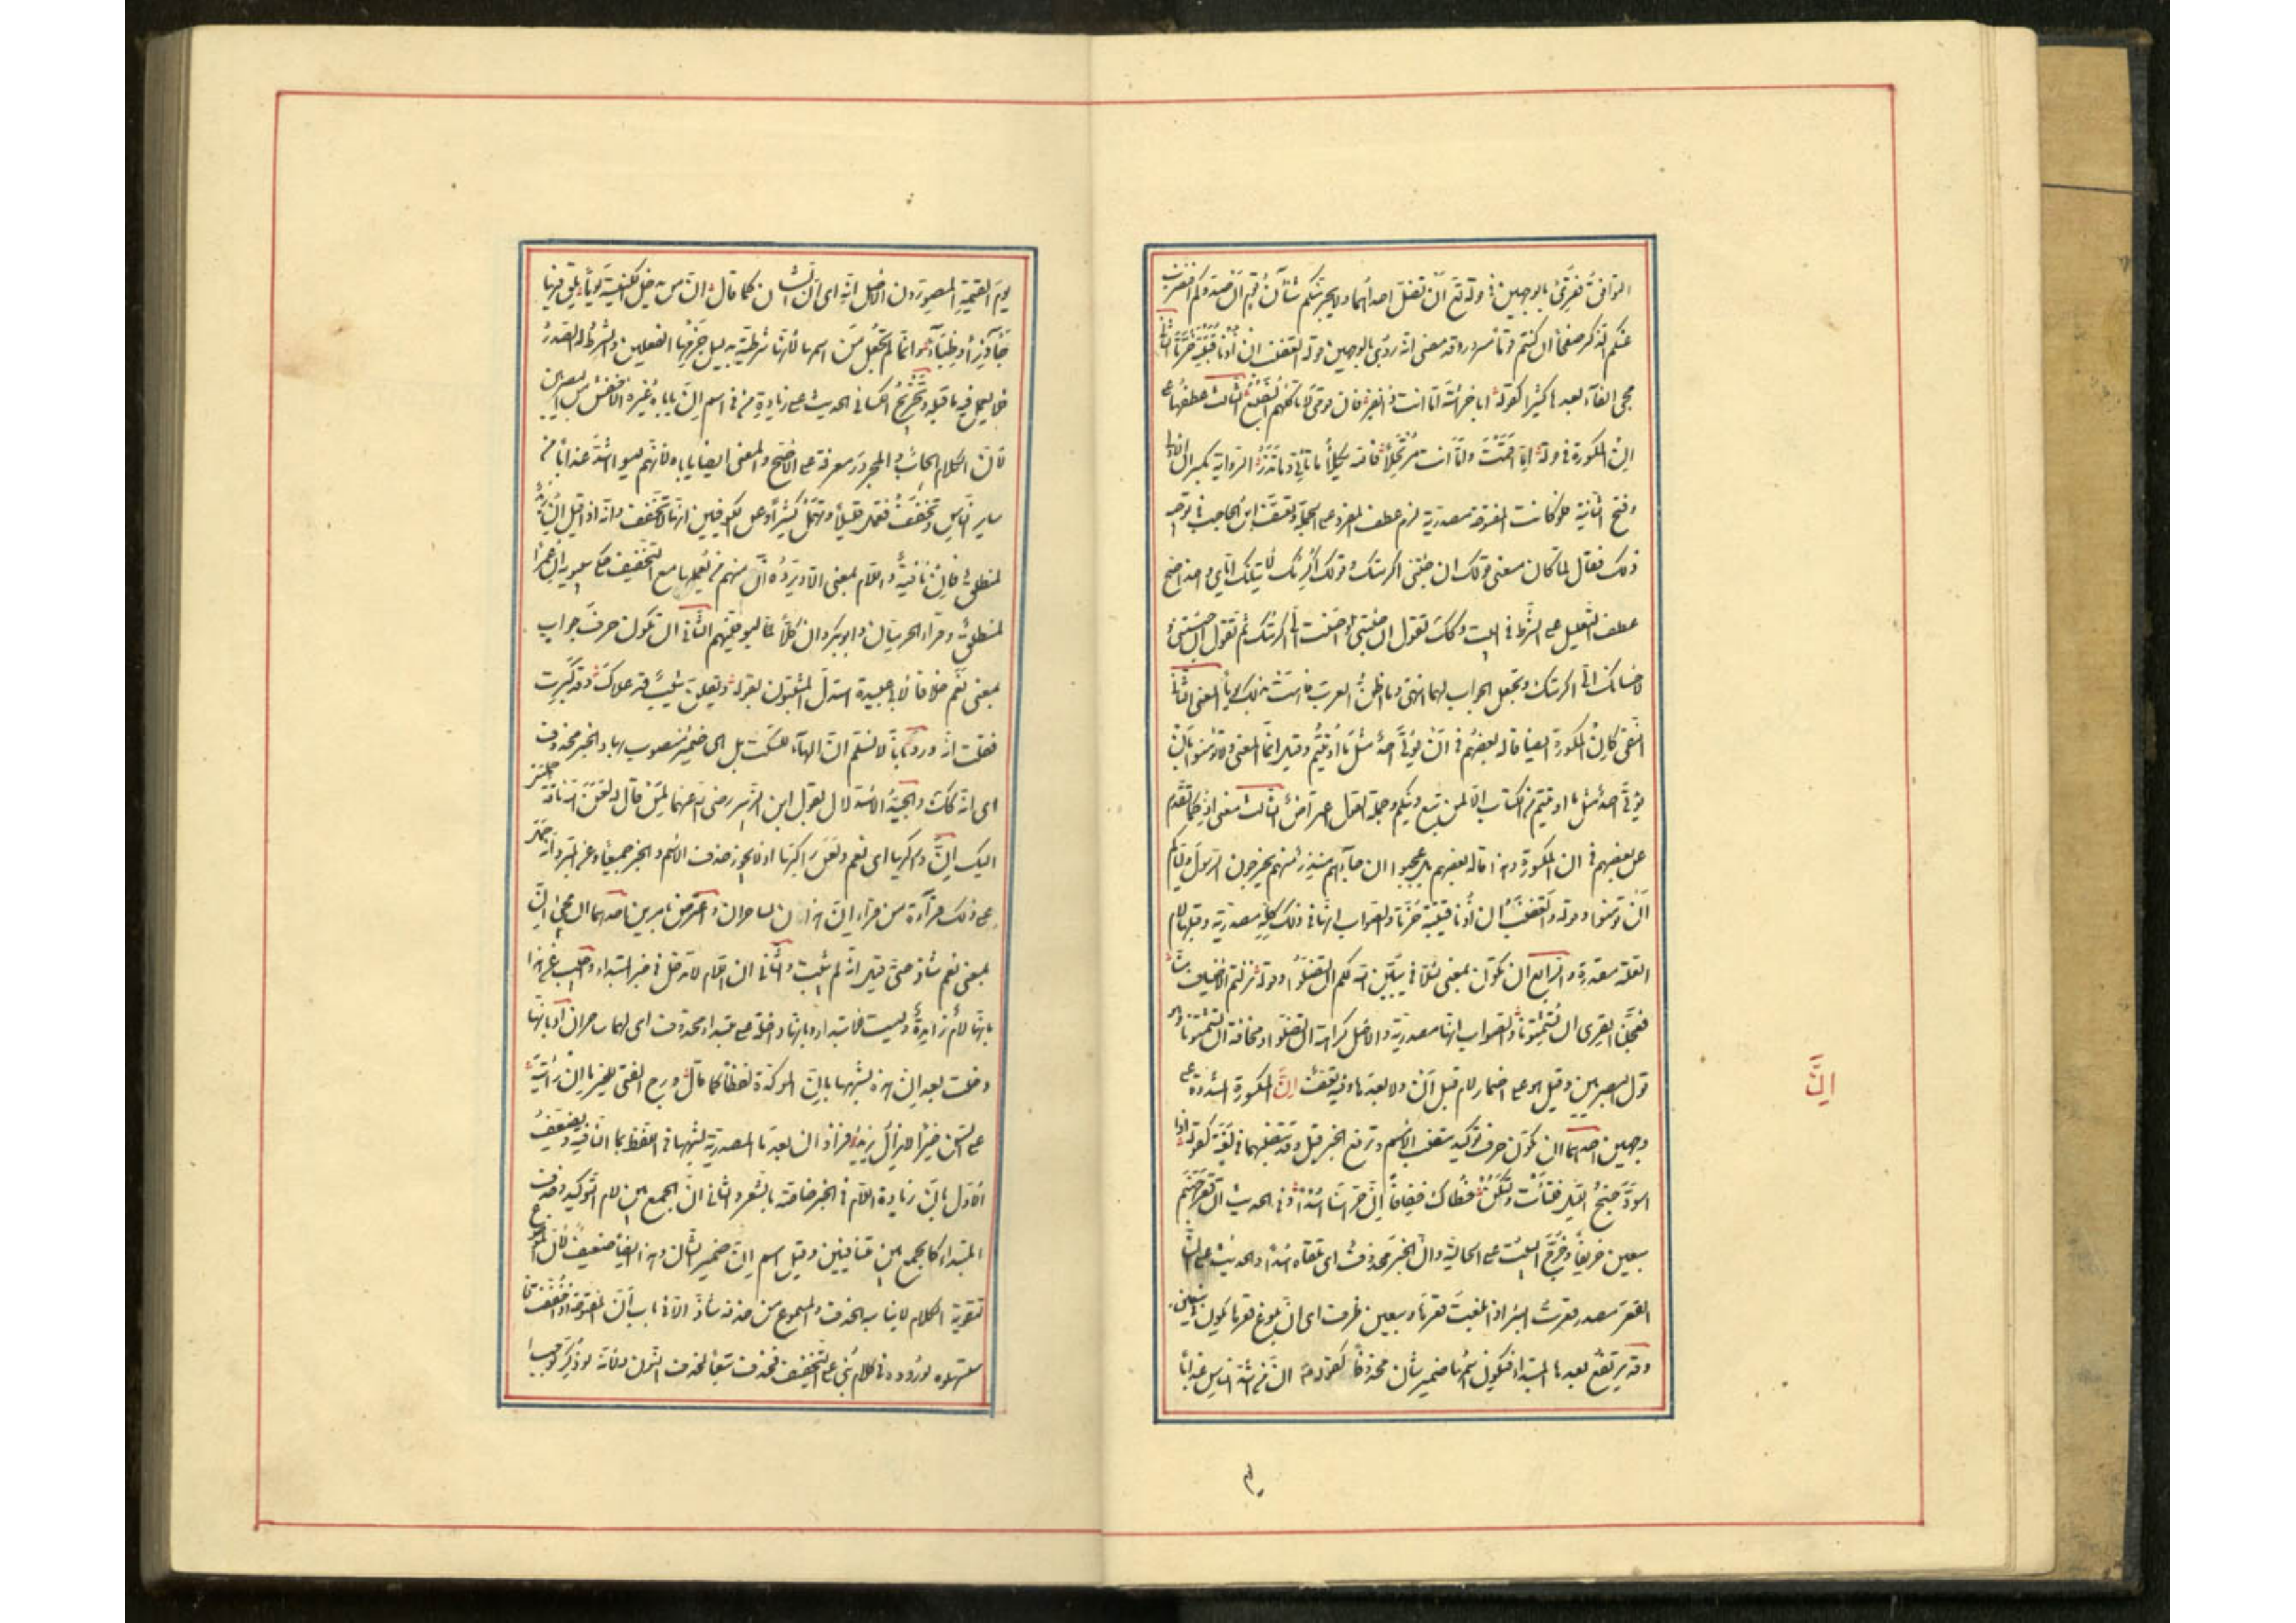 التوافق فقرئ بالوجهين في قوله تع أن تضل احدٰهما ولا يجرمنكم شنآن قوم ان صدوكم افنضرب
عنكم الذكر صفحاً ان كنتم قوما مسرفين وقد مضى انه روي بالوجهين قوله اتغضب ان أذنا قتيبة حزتا الثاني
مجئ الفاء بعدها كثيرا كقوله ابا خراشة اما انت ذا نفر فان قومي لم تاكلهم الضبع الثالث عطفها على
إن المكسورة في قوله إما اقمت واما انت مرتحلاً فالله يكلأ ما تأتي وما تذر الرواية بكسر ان الاولى
وفتح الثانية فلو كانت المفتوحة مصدرية لزم عطف المفرد على الجملة وتعسف ابن الحاجب في توجيه
ذلك فقال لما كان معنى قولك ان جئتني اكرمتك وقولك اكرمك لاتيانك اياي واحدا صح
عطف التعليل على الشرط في البيت وكك تقول ان جئتني واحسنت الي اكرمتك ثم تقول ان جئتني و
لاحسانك الي اكرمتك وتجعل الجواب لهما انتهى وما اظن العرب فاهت بذلك يوماً المعنى الثاني
النفي كإن المكسورة ايضا قاله بعضهم في أن يؤتى احد مثل ما اوتيتم وقيل انما المعنى ولا تؤمنوا بأن
يؤتى احد مثل ما اوتيتم من الكتاب الا لمن تبع دينكم وجملة القول اعتراض الثالث معنى اذ كما تقدم
عن بعضهم في ان المكسورة وهذا قاله بعضهم بل عجبوا ان جاءهم منذر منهم يخرجون الرسول واياكم
أن تؤمنوا وقوله واتغضب ان أذنا قتيبة حزتا والصواب انها في ذلك كله مصدرية وقبلها لام
العلة مقدرة والرابع ان تكون بمعنى لئلا في يبين الله لكم ان تضلوا وقوله نزلتم منزل الاضياف منا
فعجلنا القرى ان تشتمونا والصواب انها مصدرية والاصل كراهة ان تضلوا ومخافة ان تشتمونا وهو
قول البصريين وقيل هو على اضمار لام قبل أن ولا بعدها وفيه تعسف إنّ المكسورة المشددة على
وجهين احدهما ان تكون حرف توكيد تنصب الاسم وترفع الخبر قيل وقد تنصبهما في لغة كقوله اذا
اسود جنح الليل فلتأت ولتكن خطاك خفافاً إن حراسنا اسدا وفي الحديث ان قعر جهنم
سبعين خريفاً وخرج البيت على الحالية وان الخبر محذوف اى تلقاه اسداً والحديث على ان
القعر مصدر قعرت البئر اذا بلغت قعرها وسبعين ظرف اى ان بلوغ قعرها يكون في سبعين
وقد يرتفع بعدها المبتداء فيكون اسمها ضمير شأن محذوفاً كقوله ان من اشد الناس عذاباً
إنّ
يوم القيمة المصورون الاصل انه اى ان الشان كما قال ان من يدخل الكنيسة يوماً يلق فيها
جآذراً وظباءً وانما لم تجعل من اسمها لأنها شرطية بدليل جزمها الفعلين والشرط له الصدر
فلا يعمل فيه ما قبله وتخريج الكسائي الحديث على زيادة من في اسم إن ياباه غير الاخفش من البصريين
لأن الكلام ايجاب والمجرور معرفة على الاصح والمعنى ايضاً ياباه لانهم ليسوا اشد عذاباً من
ساير الناس وتخفف فتعمل قليلاً وتهمل كثيراً وعن الكوفيين انها لا تخفف وانه اذا قيل ان زيد
لمنطلق فإن نافية واللام بمعنى الا ويرده أن منهم من يعملها مع التخفيف حكى سيبويه ان عمراً
لمنطلق وقراء الحرميان وابو بكر وان كلاً لما ليوفينهم الثاني ان تكون حرف جواب
بمعنى نعم خلافا لابي عبيدة استدل المثبتون بقوله ويقلن شيب قد علاك وقد كبرت
فقلت انه ورد بأنا لا نسلم ان الهاء للسكت بل هى ضمير منصوب بها والخبر محذوف
اى انه كك والجيد الاستدلال بقول ابن الزبير رضي الله عنهما لمن قال له لعن الله ناقة حملتنى
اليك إن وراكبها اى نعم ولعن راكبها اذ لا يجوز حذف الاسم والخبر جميعاً وعن المبرد انه حمل
على ذلك قرآءة من قراء إن هذان لساحران واعترض بامرين احدهما ان مجئ إن
بمعنى نعم شاذ حتى قيل انه لم يثبت والثاني ان اللام لا تدخل في خبر المبتداء واجيب عن هذا
بانها لام زايدة وليست للابتداء او بانها داخلة على مبتداء محذوف اى لهما ساحران او بانها
دخلت بعد إن هذه لشبهها بإن المؤكدة لفظاً كما قال ورج الفتى للخير ما إن رأيته
على السن خيراً لا يزال يزيد فزاد ان بعد ما المصدرية لشبهها في اللفظ بما النافية ويضعف
الاول بان زيادة اللام في الخبر خاصة بالشعر والثاني ان الجمع بين لام التوكيد وحذف
المبتداء كالجمع بين متنافيين وقيل اسم إن ضمير الشان وهذا ايضاً ضعيف لان الموضوع
لتقوية الكلام لا يناسبه الحذف والمسموع من حذفه شاذ الا في باب أن المفتوحة اذا خففت
استسهلوه لوروده في كلام بني على التخفيف فحذف تبعاً لحذف النون ولانه لو ذكر لوجب